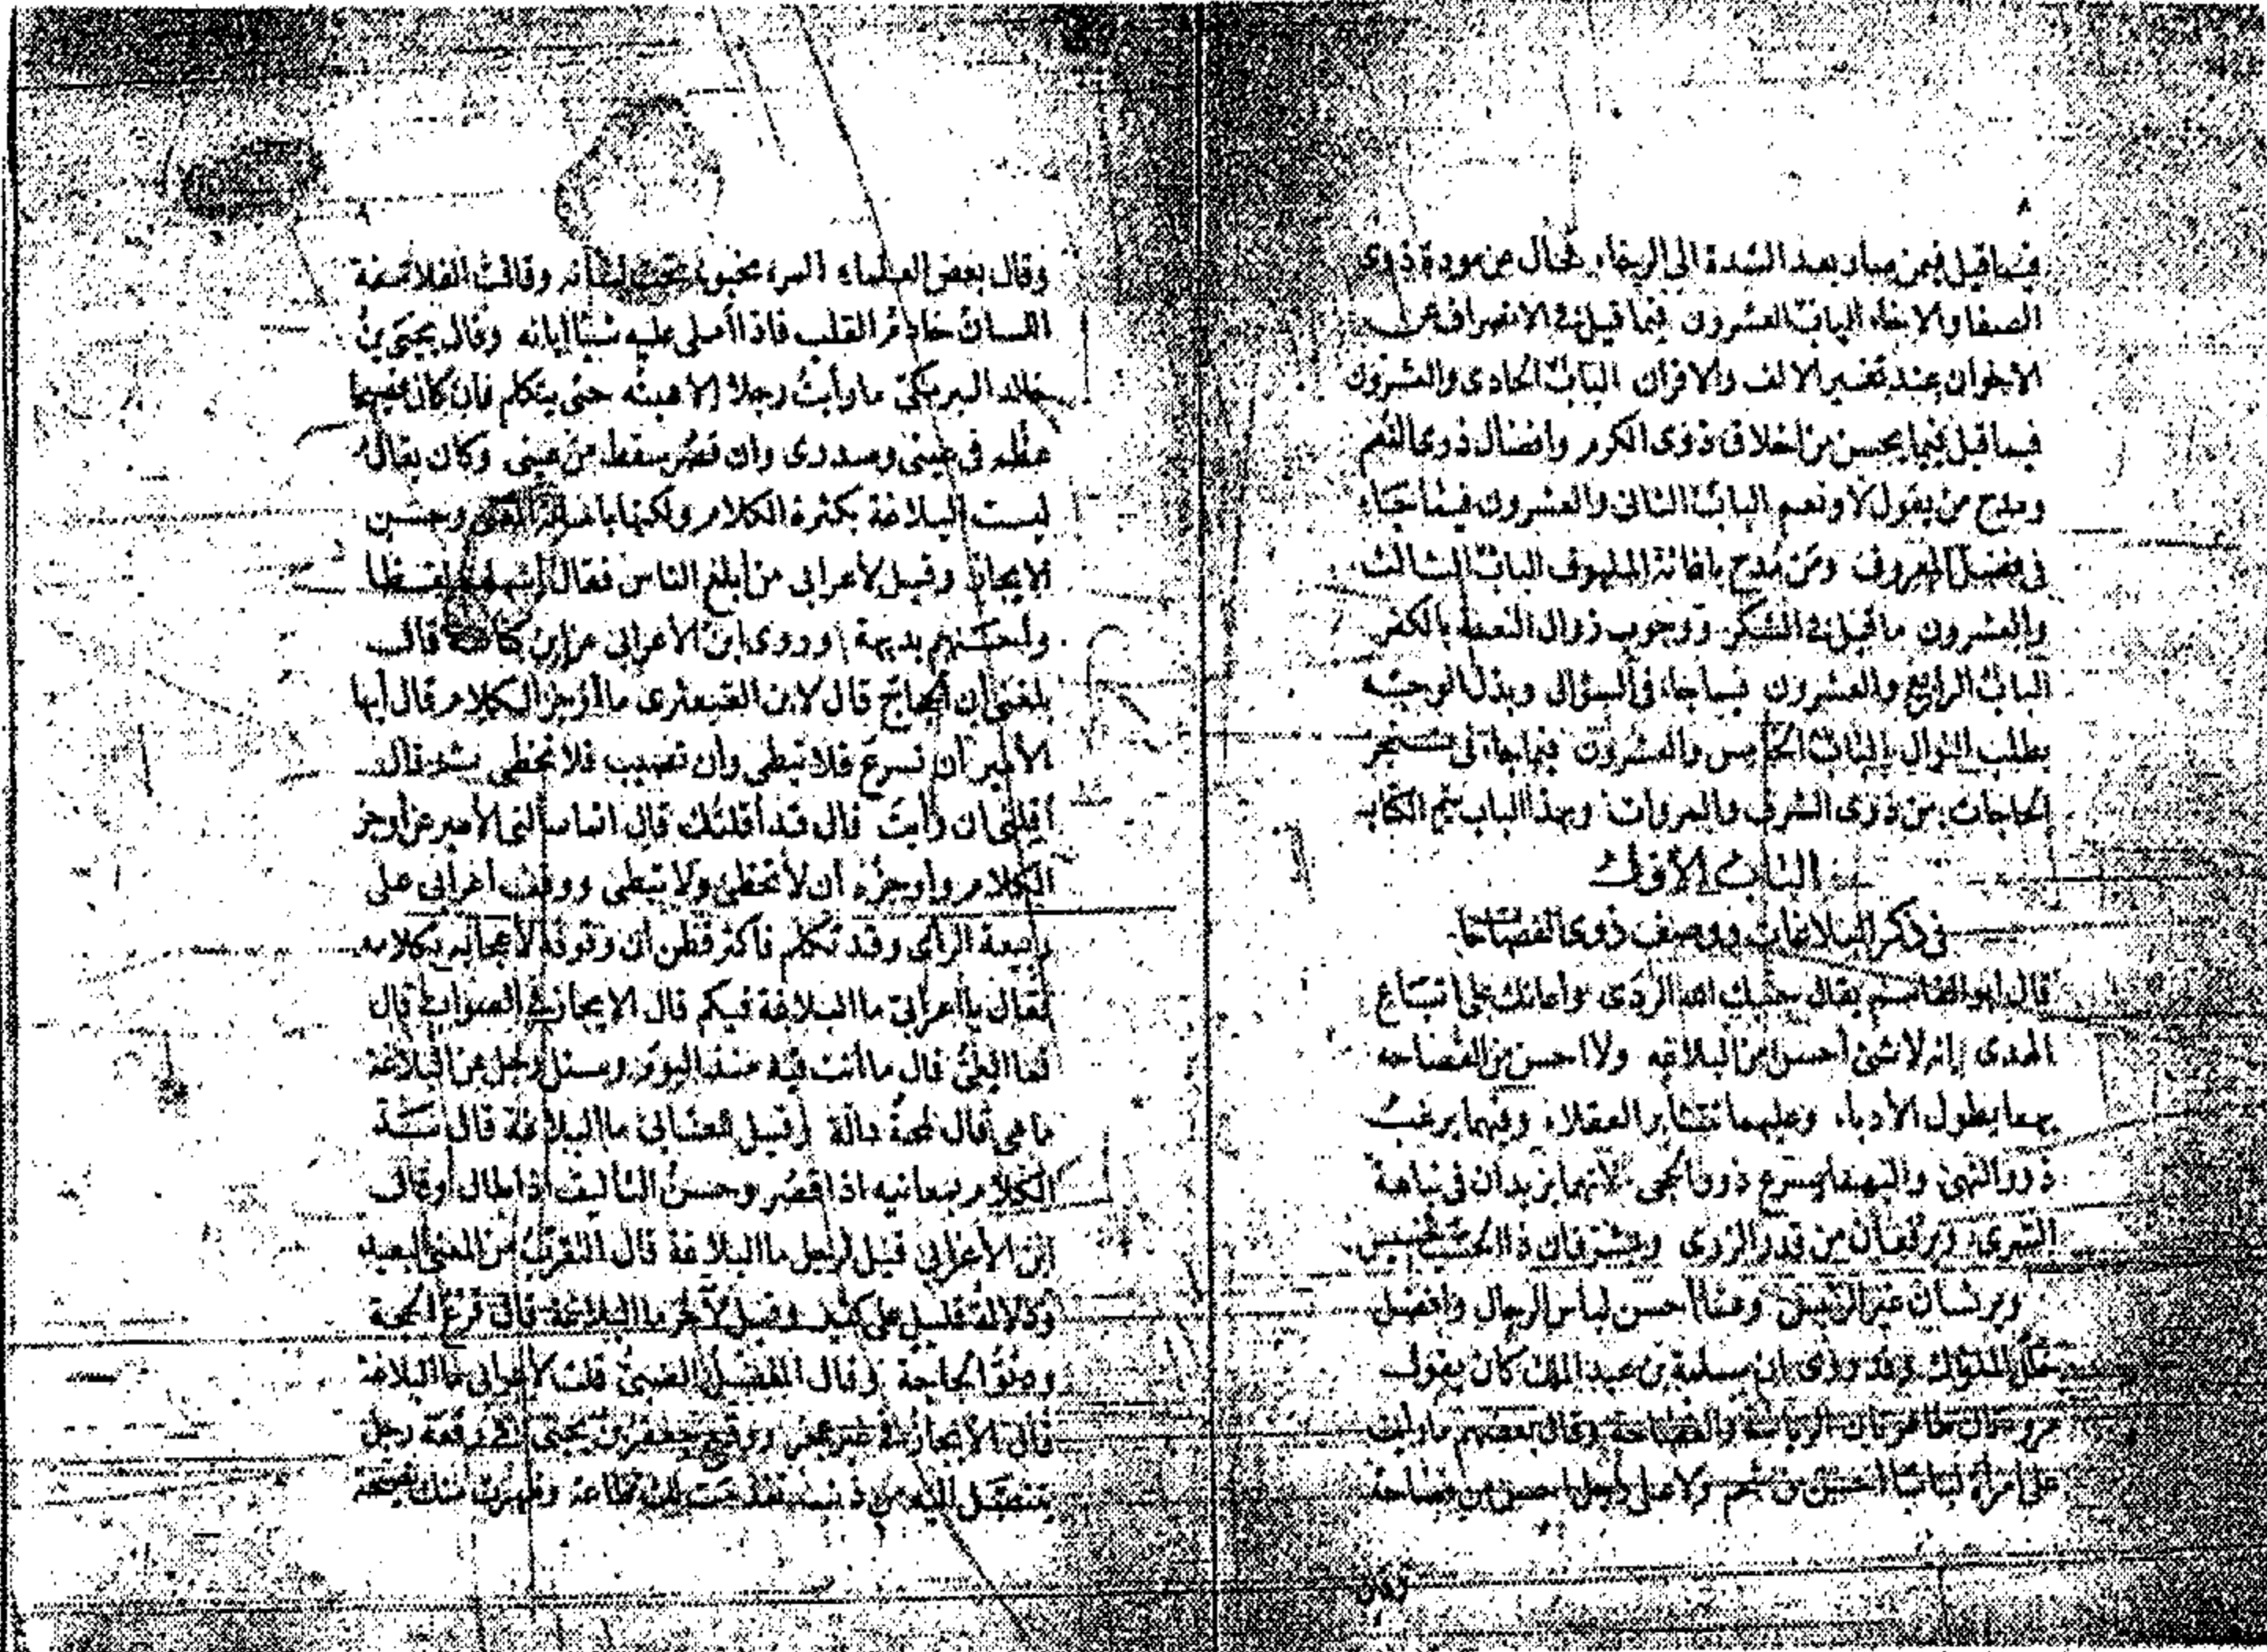 ٨
فيما قيل فيمن صار بعد الشدة الى الرخاء فحال عن مودة ذوى
الصفا والاخاء الباب العشرون فيما قيل فى الانصراف عن
الاخوان عند تغير الالف والاقران الباب الحادى والعشرون
فيما قيل فيما يحسن من اخلاق ذوى الكرم وافضال ذوى النعم
ومدح من يقول لا ونعم الباب الثانى والعشرون فيما جاء
فى فضل المعروف ومن مدح باغاثة الملهوف الباب الثالث
والعشرون ما قيل فى الشكر ووجوب زوال النعمة بالكفر
الباب الرابع والعشرون فيما جاء فى السؤال وبذل الوجه
بطلب النوال الباب الخامس والعشرون فيما جاء فى
الحاجات من ذوى الشرف والمروات وبهذا الباب يتم الكتاب
الباب الأول
فى ذكر البلاغات ووصف ذوى الفصاحات
قال ابو القاسم يقال جنبك الله الردى وأعانك على اتباع
الهدى إنه لا شئ أحسن من البلاغه ولا احسن من الفصاحه
بهما يطول الأدباء وعليهما العقلاء وفيهما يرغب
ذوو النهى يسرع ذوو الحجى لانهما يزيدان فى نباهة
السرى ويرفعان من قدر الزرى ويشرفان
ويرئسان غير الرئيس وهما أحسن لباس الرجال وافضل
حلل الملوك وقد روى ان مسلمة بن عبد الملك كان يقول
مروءتان ظاهرتان الرياسة والفصاحة وقال بعضهم ما رأيت
على امرأة لباسا أحسن من شحم ولا على رجل احسن من فصاحة
وقال
٩
وقال بعض العلماء المرء مخبوء تحت لسانه وقالت الفلاسفة
اللسان خادم القلب فاذا أملى عليه شيئا ابانه وقال يحيى بن
خالد البرمكى ما رأيت رجلا إلا هبته حتى يتكلم فان كان فصيحا
عظم فى عينى وصدرى وان قصر سقط من عينى وكان يقال
ليست البلاغة بكثرة الكلام ولكنها باصابة المعنى وحسن
الايجاز وقيل لأعرابى من أبلغ الناس فقال أسهلهم لفظا
وأحسنهم بديهة وروى ابن الأعرابى عن ابن قال
بلغنى أن الحجاج قال لابن القبعثرى ما أوجز الكلام قال أيها
الأمير أن تسرع فلا تبطى وأن تصيب فلا تخطى ثم قال
أقلنى ان رأيت قال قد أقلتك قال انما سألنى الأمير عن أوجز
الكلام وأوجزه أن لا تخطى ولا تبطى ووقف اعرابى على
ربيعة الرأى وقد تكلم فاكثر فظن أن وقوفه لأعجابه بكلامه
فقال يا اعرابى ما البلاغة فيكم قال الايجاز فى الصواب قال
فما العى قال ما أنت فيه منذ اليوم وسئل رجل عن البلاغة
ما هى قال لمحة دالة وقيل للعتابى ما البلاغة قال سد
الكلام بمعانيه اذا قصر وحسن التأليف اذا طال وقال
ابن الأعرابى قيل لرجل ما البلاغة قال التقرب من المعنى البعيد
ودلالة قليل على كثير وقيل لآخر ما البلاغة قال قرع الحجة
ودنو الحاجة وقال المفضل الضبى قلت لأعرابى ما البلاغة
قال الايجاز فى غير عجز ووقع جعفر بن يحيى فى رقعة رجل
يتنصل اليه من ذنب تقدمت لك طاعة وظهرت منك نصيحة